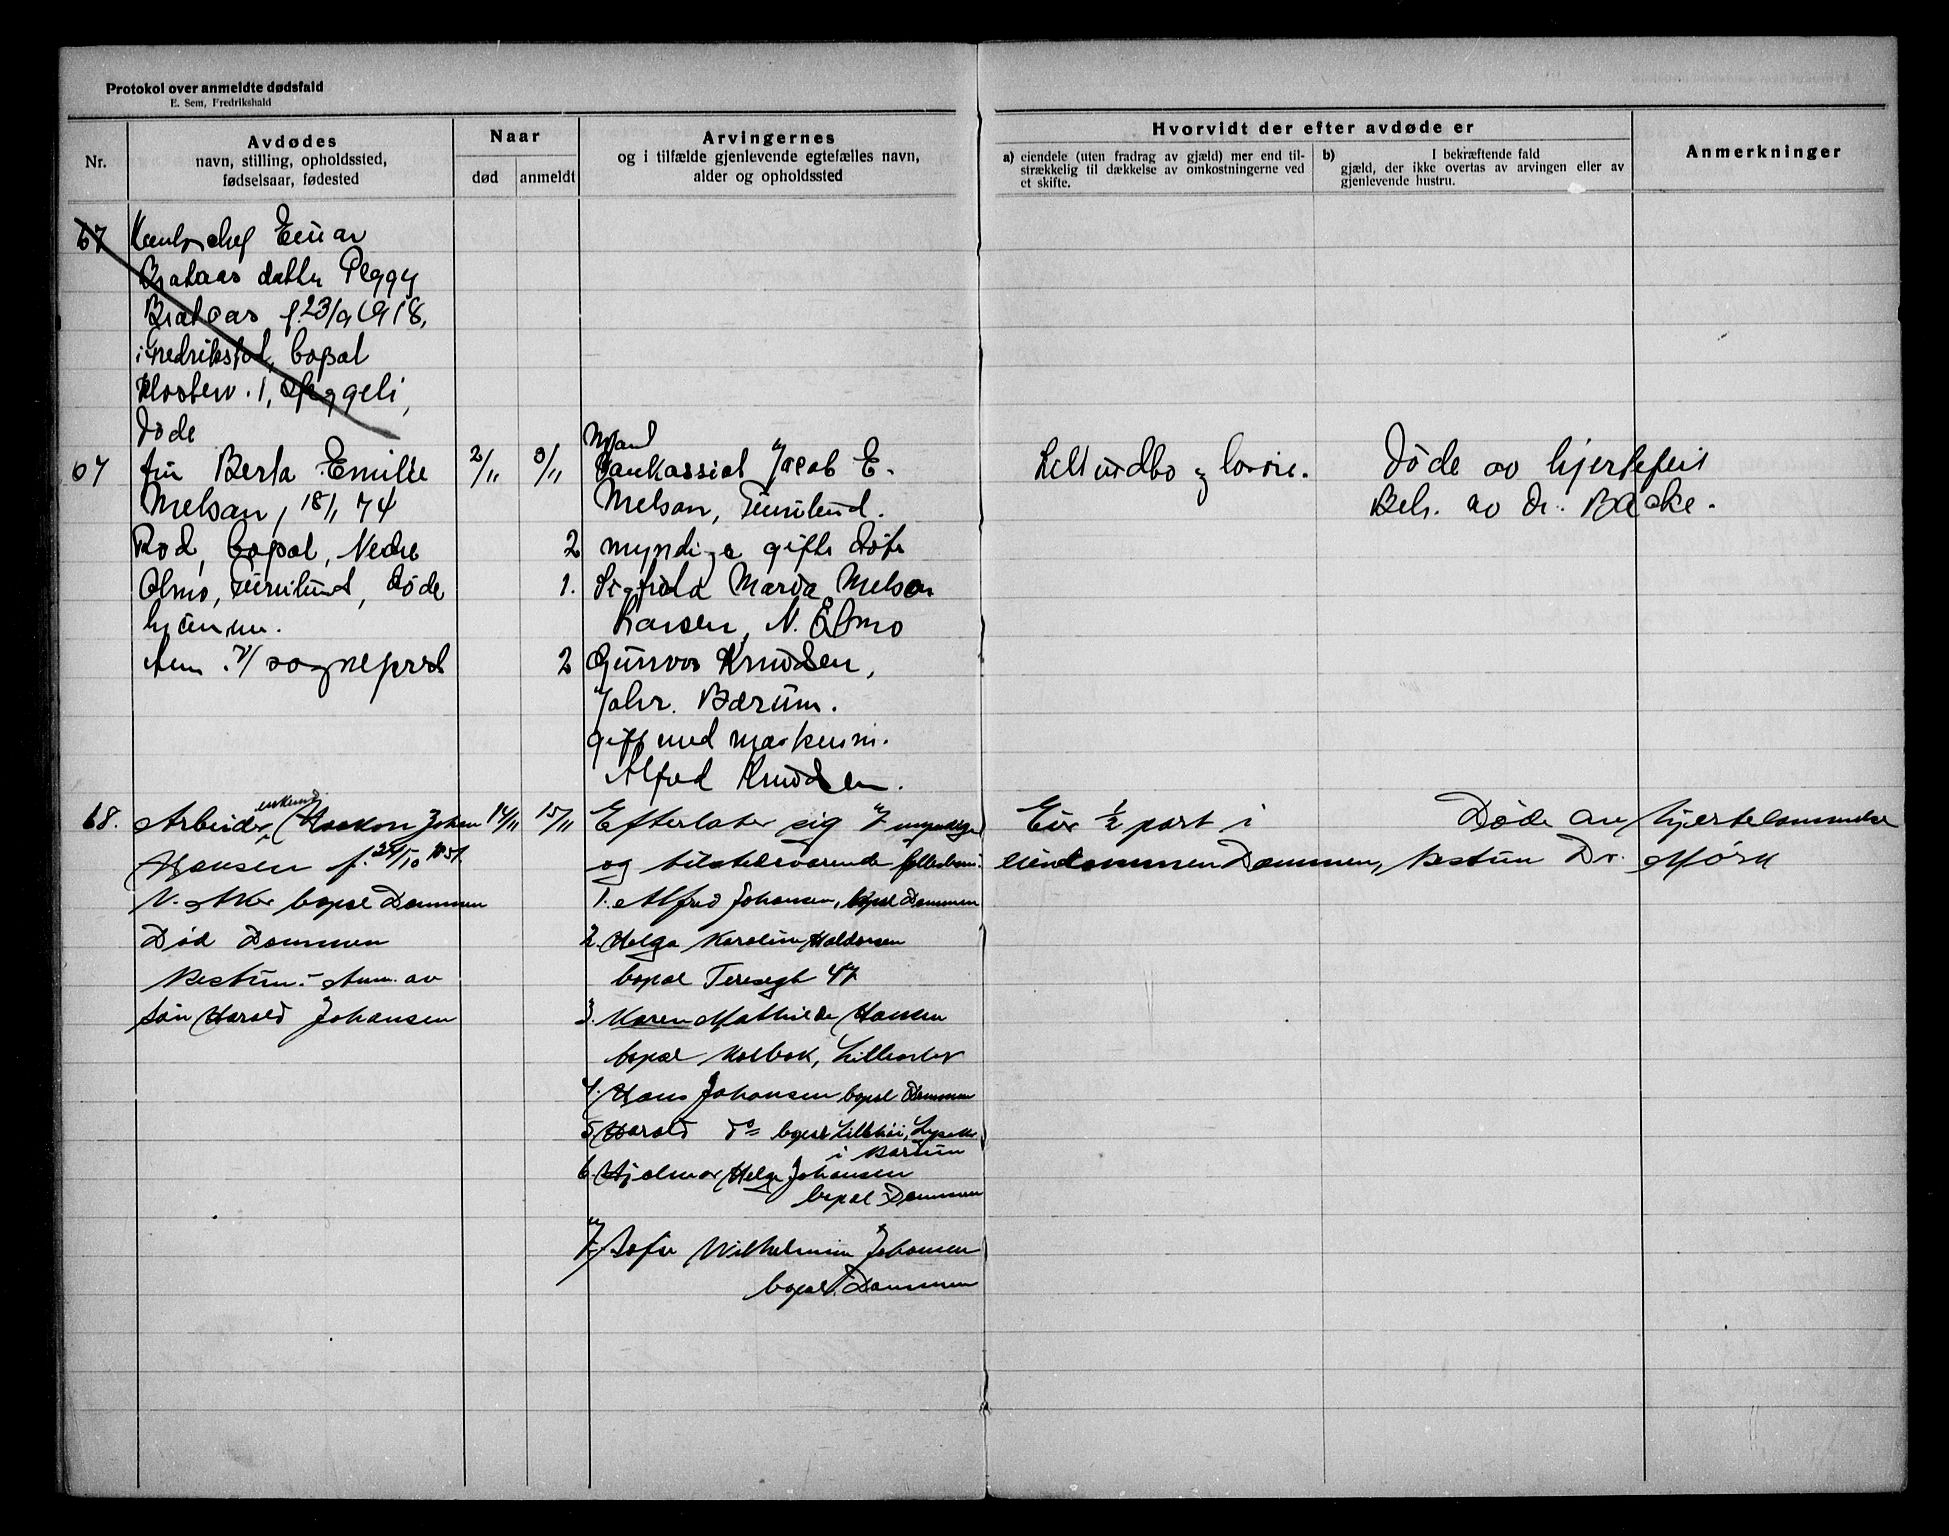 Protokol over anmeldte dødsfald
E. Sem, Fredrikshald
Nr.
Avdødes
navn, stilling, opholdssted,
fødselsaar, fødested
Naar
død
anmeldt
Arvingernes
og i tilfælde gjenlevende egtefælles navn,
alder og opholdssted
Hvorvidt der efter avdøde er
a) eiendele (uten fradrag av gjæld) mer end til-
strækkelig til dækkelse av omkostningerne ved
et skifte.
b) I bekræftende fald
gjæld, der ikke overtas av arvingen eller av
gjenlevende hustru.
Anmerkninger
67 Einar
Brataas datter Peggy
Brataas f. 23/9 1918,
i Fredrikstad, bopæl
1,
døde
67 fru Berta Emilie
Melsom, 18/1 74
Rød, bopæl, Nedre
Ølmo, døde
hjemme.
Anm. sogneprest
2/11
3/11
Mand
Bankkasserer Jacob E.
Melsom,
2 myndige gifte døtre
1. Sigfrida Marda Melsom
Larsen, N. Ølmo
2 Gunvor Knudsen,
Bærum.
gift med maskinm.
Alfred Knudsen.
Litt indbo og løsøre.
Døde av hjertefeil
Beh. av dr. Backe.
68. Arbeider, enkemd. Haakon Johan
Hansen f. 24/10 1851
V. Aker bopæl Dammen
Død Dammen
Vestun. Anm. av
søn Harald Johansen
14/11
15/11
Efterlater sig 7 myndige
og tilstedeværende fellesbarn:
1. Alfred Johansen, bopæl Dammen
2. Helga Karoline Haldorsen
bopæl Teresegt 47
3. Karen Mathilde Hansen
bopæl Kolbok,
4. Hans Johansen bopæl Dammen
5 Harald do bopæl
i Bærum
6. Hjalmar Helge Johansen
bopæl Dammen
7. Sofie Wilhelmine Johansen
bopæl Dammen
Eier 1/2 part i
eiendommen Dammen, Vestun
Døde av hjertelammelse
Dr. Mørk